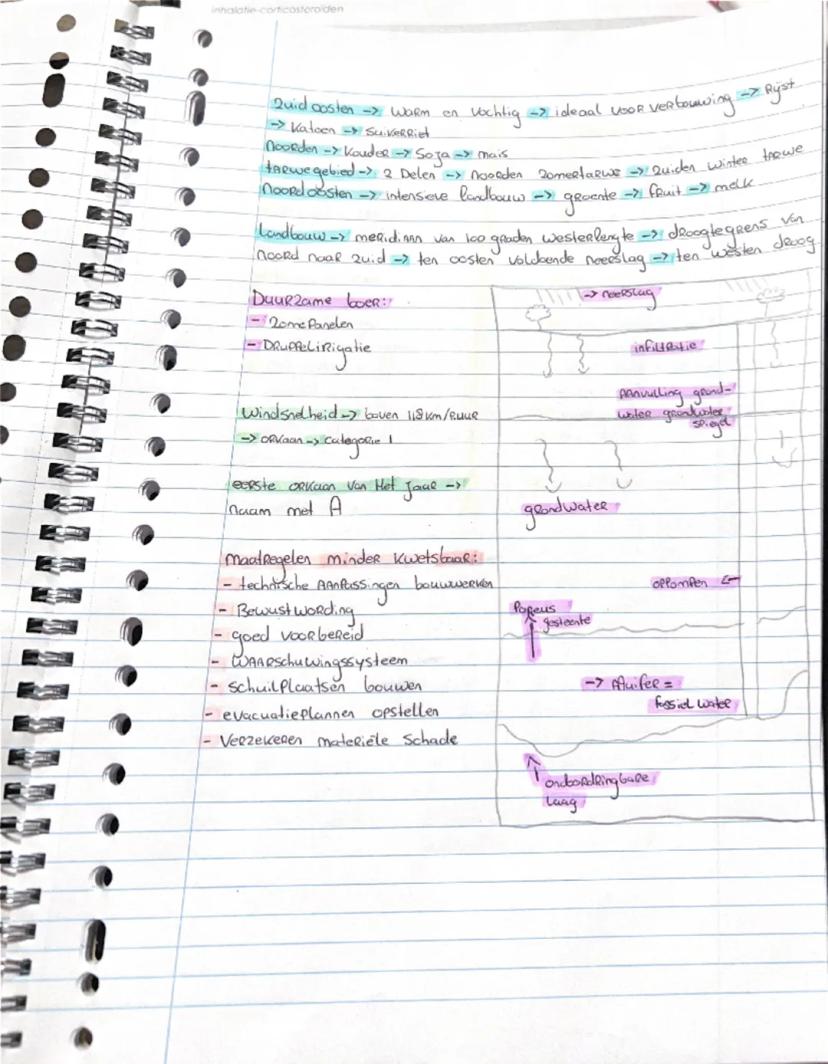 inhalatie-corticosteroïden
Zuidoosten -> warm en vochtig -> ideaal voor verbouwing -> Rijst
-> Katoen -> Suikerriet
Noorden -> Kouder -> Soja -> mais
tarwegebied -> 2 Delen -> noorden zomertarwe -> zuiden winter tarwe
Noordoosten -> intensieve landbouw -> groente -> fruit -> melk
Landbouw -> meridiaan van 100 graden westerlengte -> droogtegrens van
noord naar zuid -> ten oosten voldoende neerslag -> ten westen droog
Duurzame boer:
- zonnepanelen
- Druppelirigatie
Windsnelheid -> boven 118 km/uur
-> orkaan -> Categorie 1
eerste orkaan van Het Jaar ->
naam met A
maatregelen minder kwetsbaar:
- technische AAnpassingen bouwwerken
- Bewustwording
- goed voorbereid
- WAARschuwingssysteem
- schuilplaatsen bouwen
- evacuatieplannen opstellen
- Verzekeren materiële schade
-> neerslag
infiltratie
AAnvulling grond-
water grondwater
spiegel
grondwater
oppompen <-
Poreus
gesteente
-> Aquifer =
fossiel water
ondoordringbare
laag